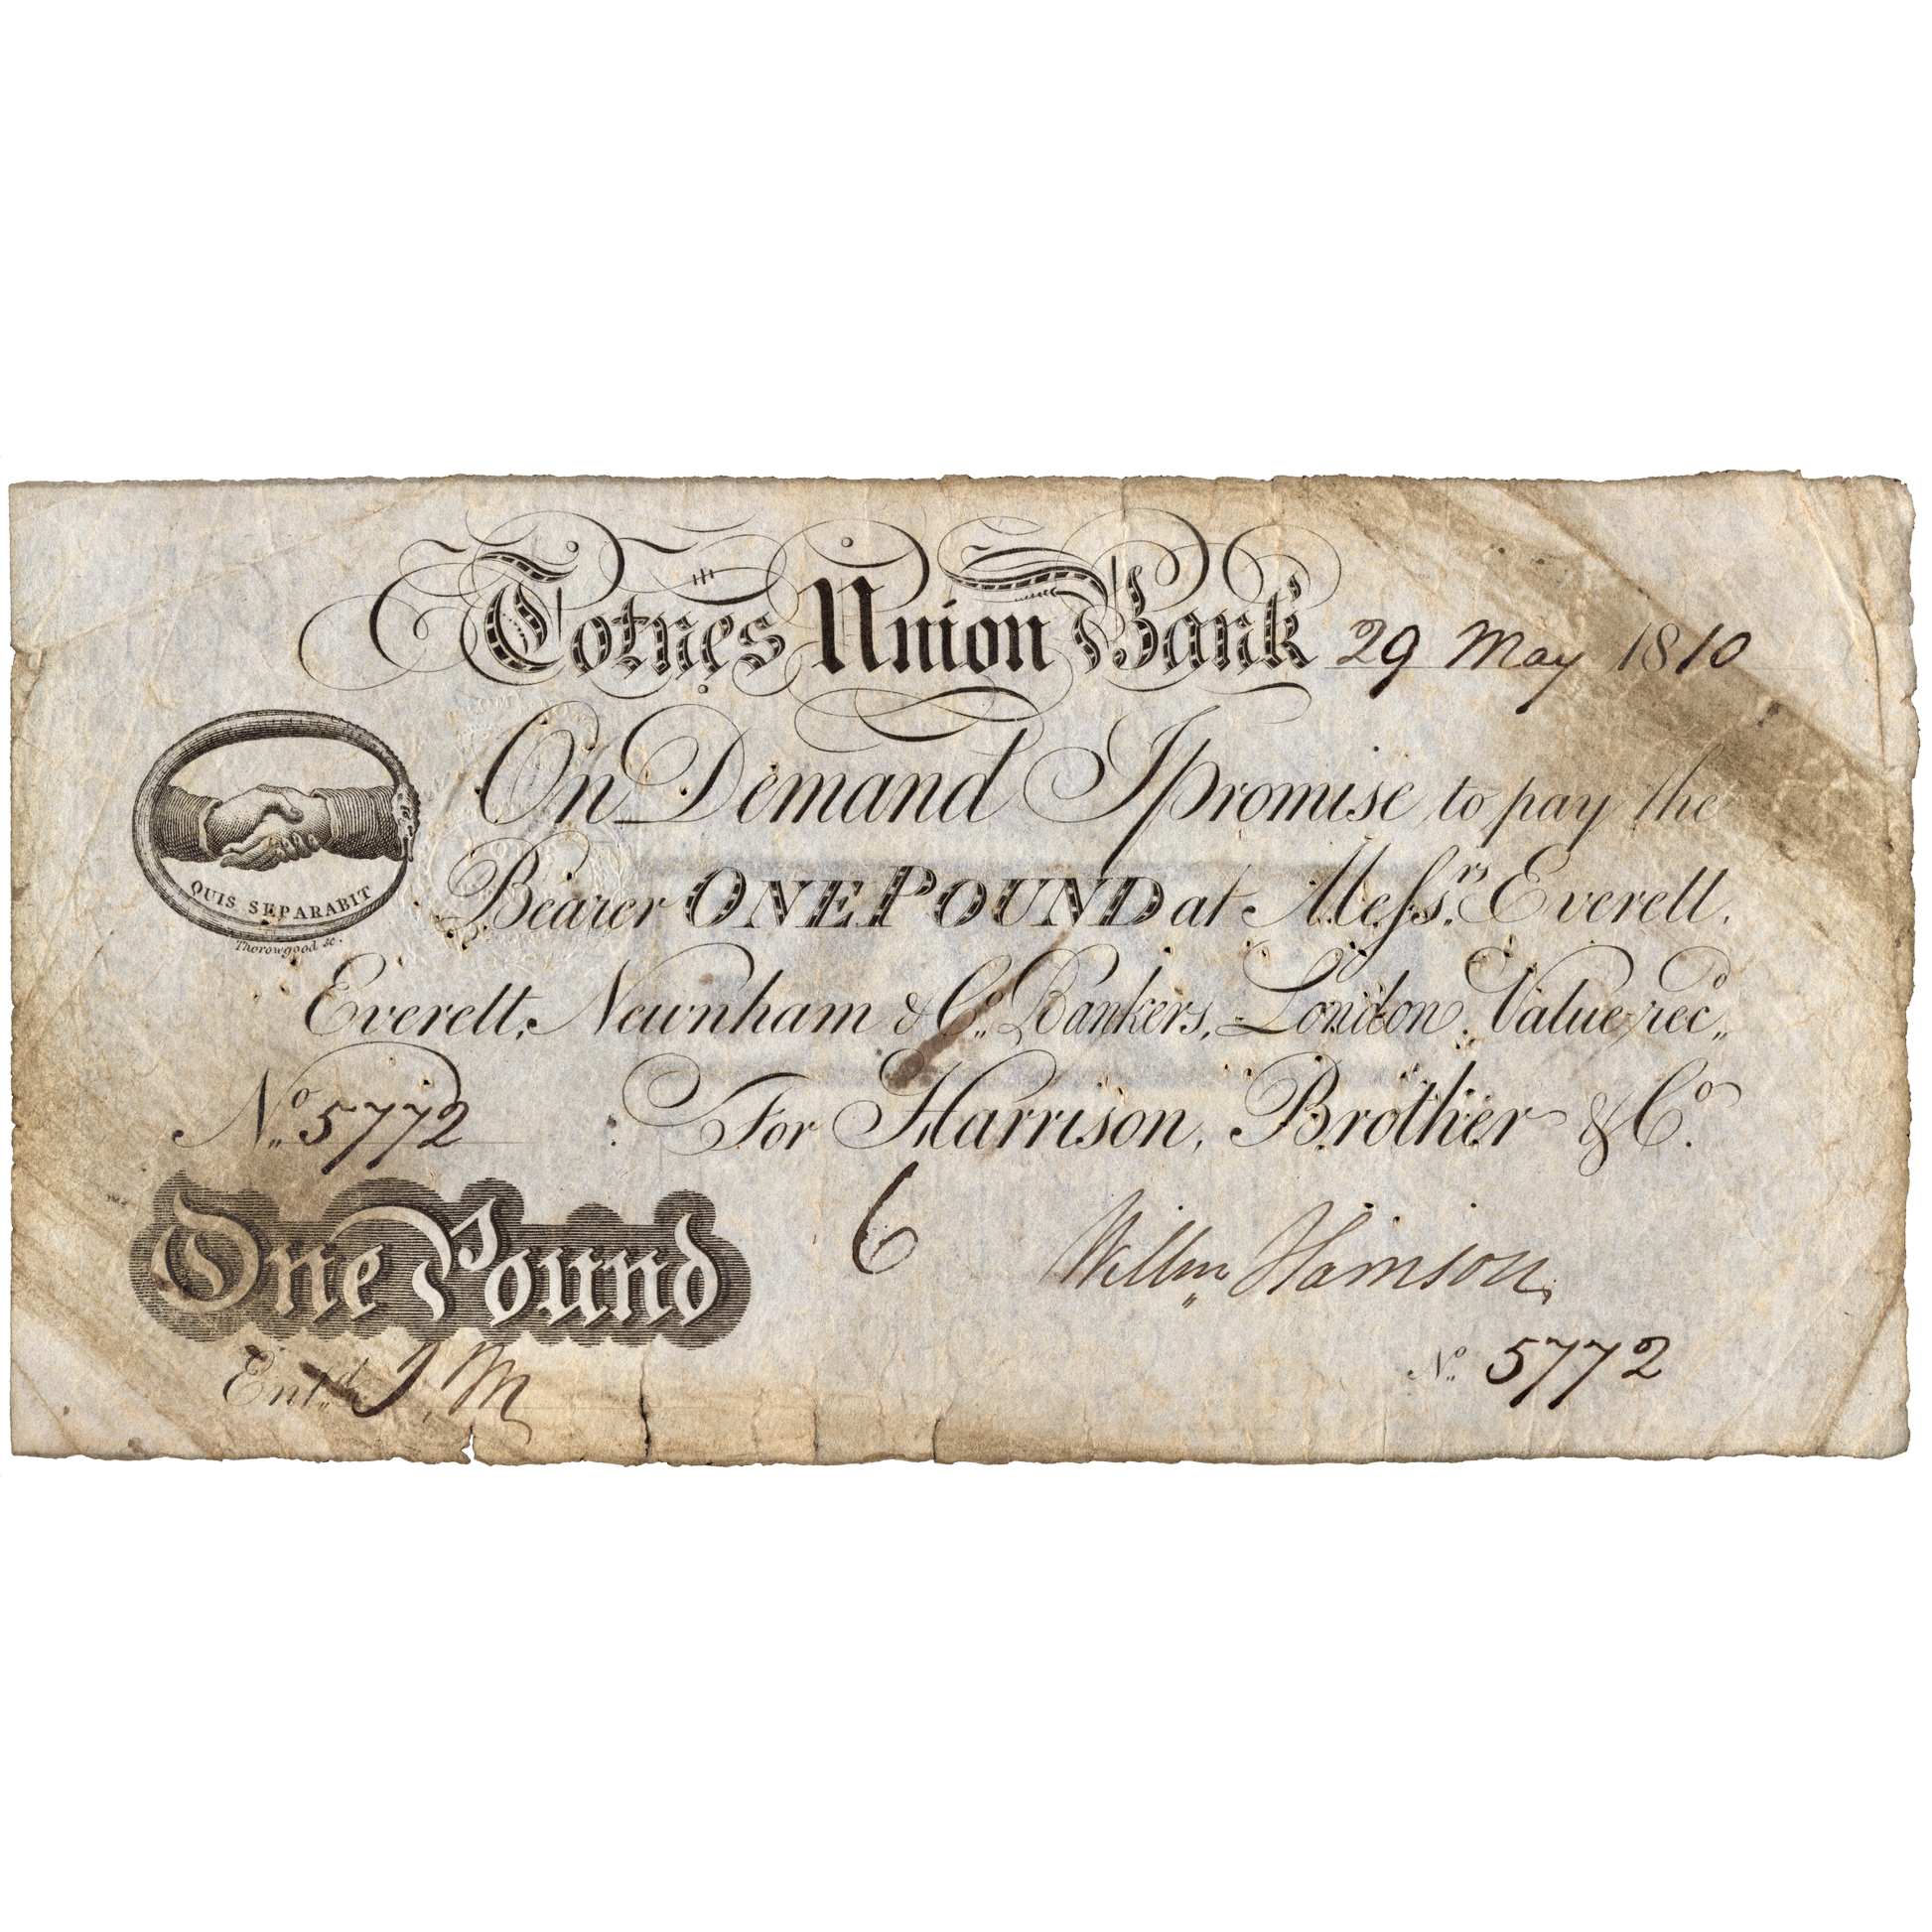 Totnes Union Bank 29 May 1810
On Demand I promise to pay the
Bearer ONE POUND at Messrs. Everett,
Everett, Newnham & Co. Bankers, London, Value rec
QUIS SEPARABIT
Thorowgood sc.
No. 5772 For Harrison, Brother & Co.
One Pound
6
Willm Harrison
Entd. J, M
No. 5772